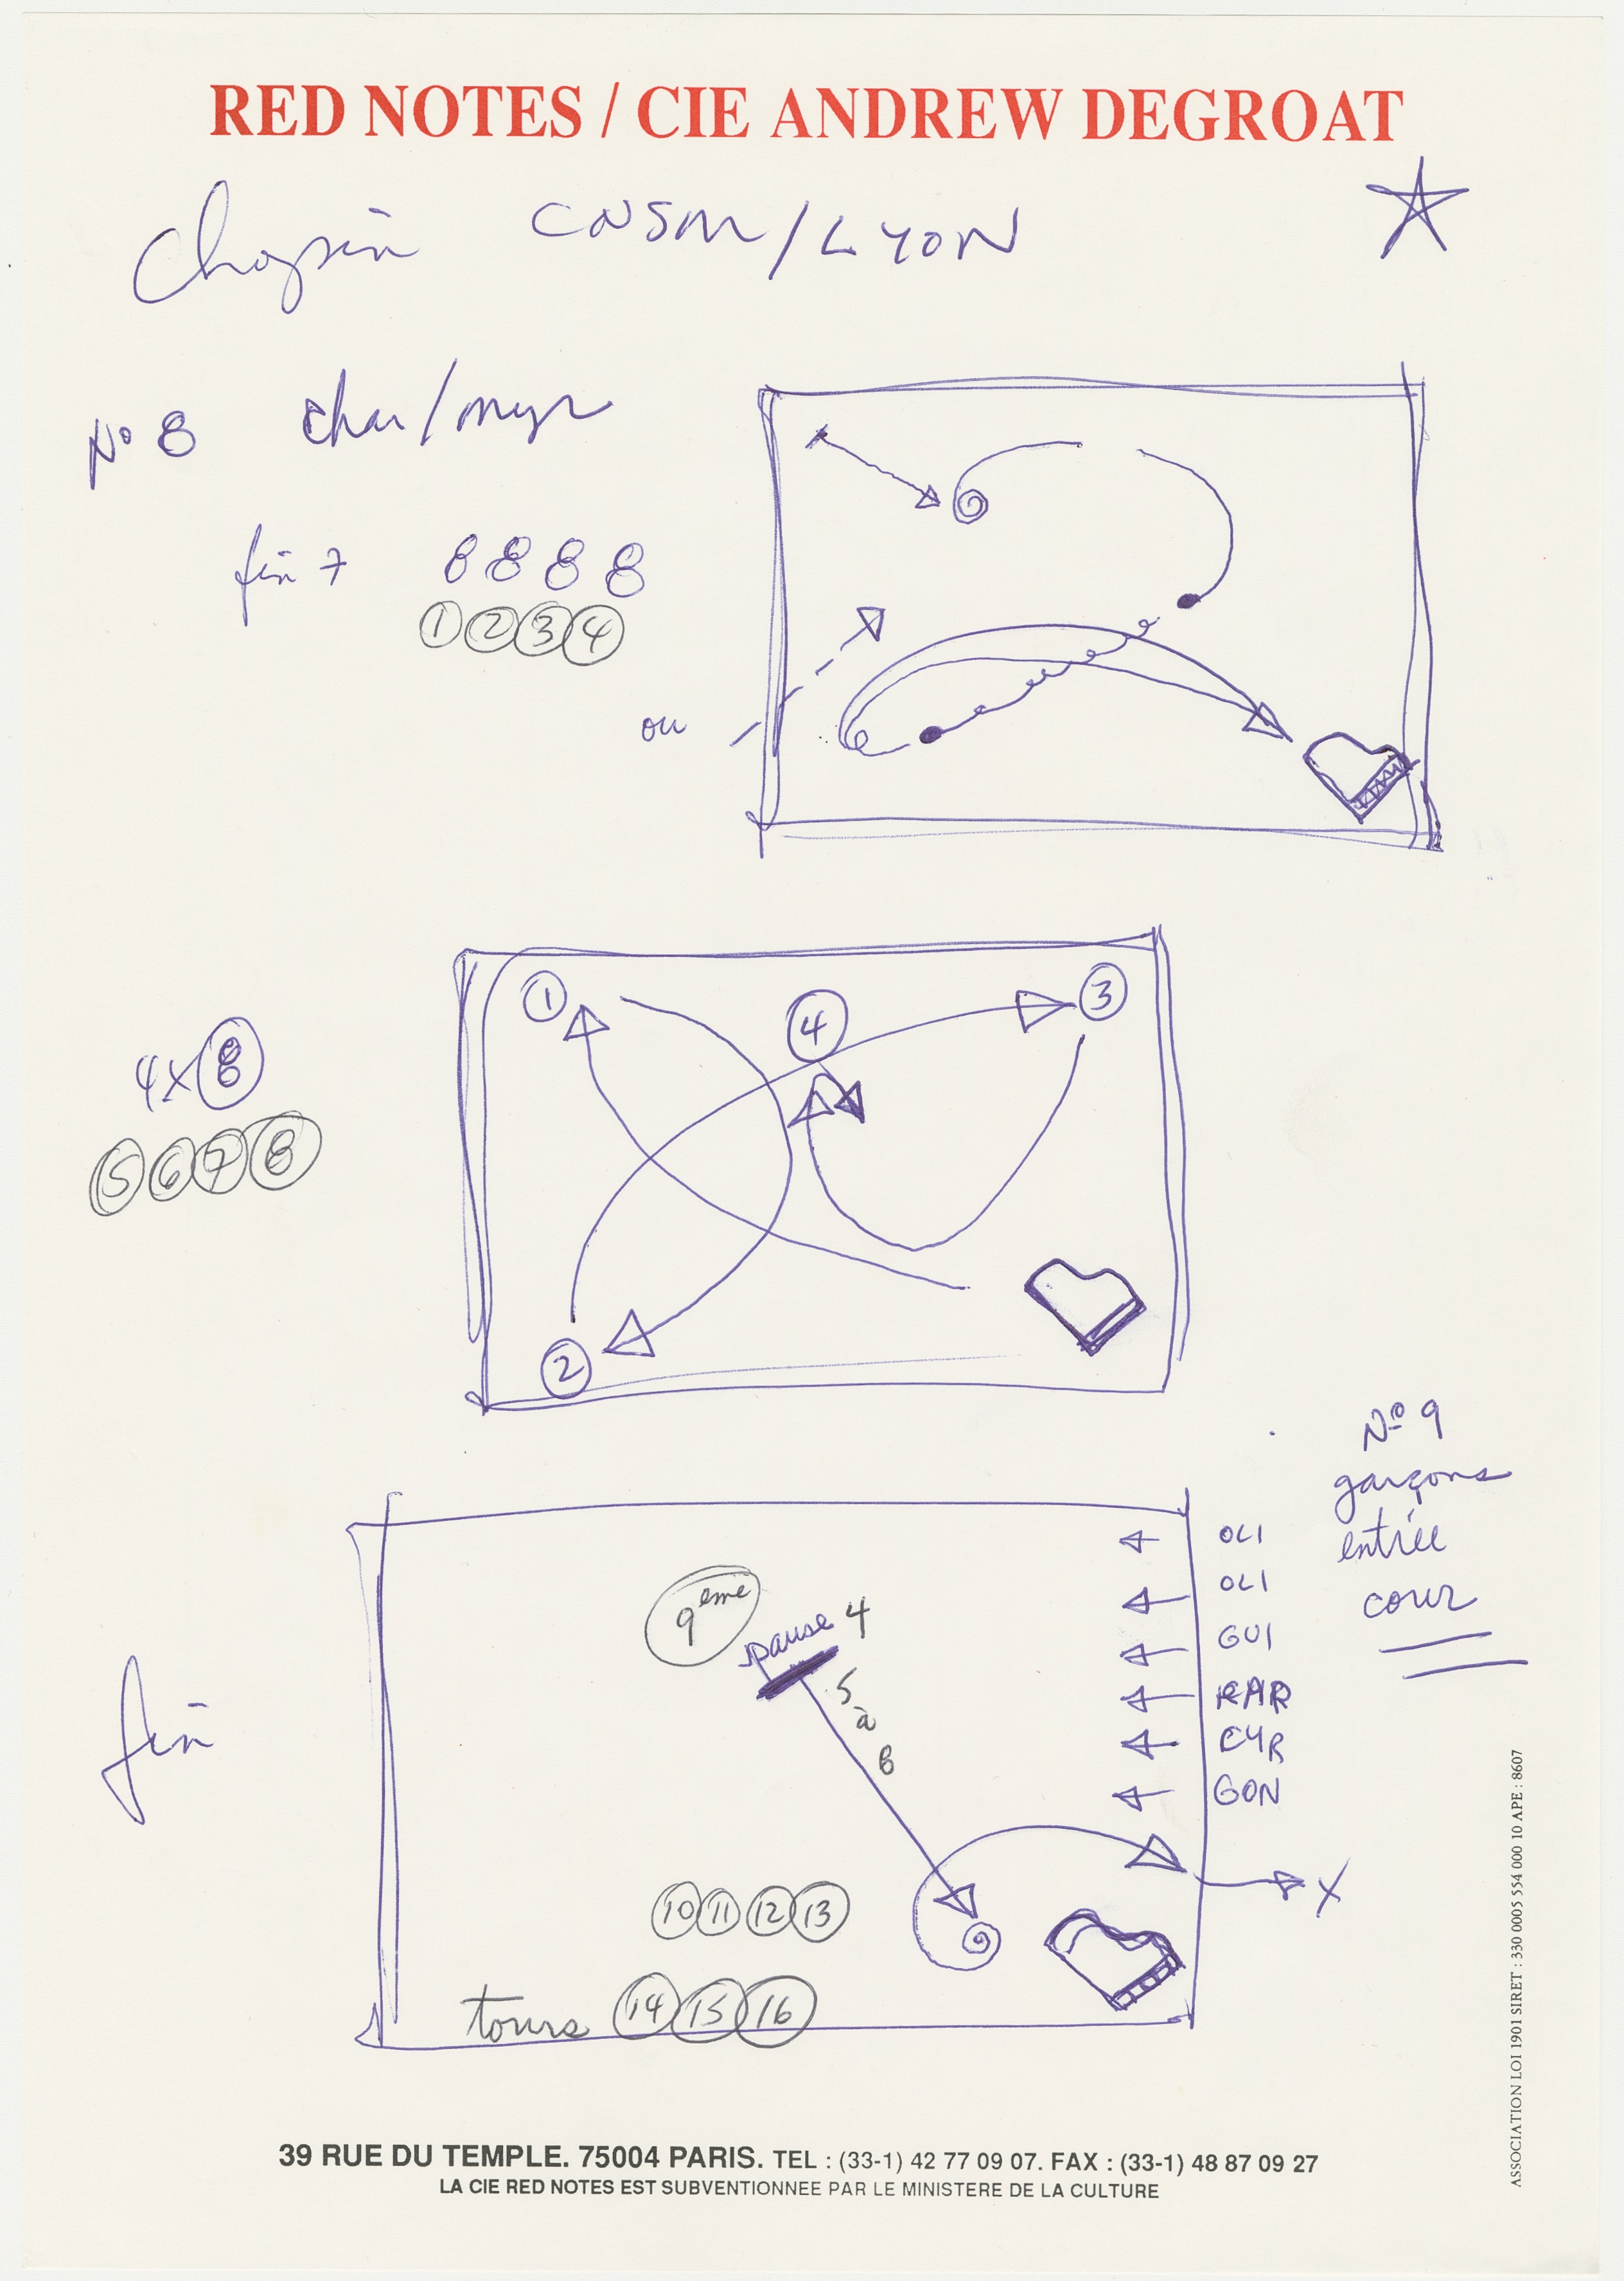 RED NOTES / CIE ANDREW DEGROAT
Chopin CNSM/LYON
N° 8 char/myr
fin 7 8 8 8 8
1 2 3 4
ou
4x8
5 6 7 8
1 4 3
2
N° 9
garçons
entrée
cour
OLI
OLI
GUI
RAR
CYR
GON
X
9eme
pause 4
5
à
8
fin
10 11 12 13
tours 14 15 16
39 RUE DU TEMPLE. 75004 PARIS. TEL : (33-1) 42 77 09 07. FAX : (33-1) 48 87 09 27
LA CIE RED NOTES EST SUBVENTIONNEE PAR LE MINISTERE DE LA CULTURE
ASSOCIATION LOI 1901 SIRET : 330 0005 554 000 10 APE : 8607